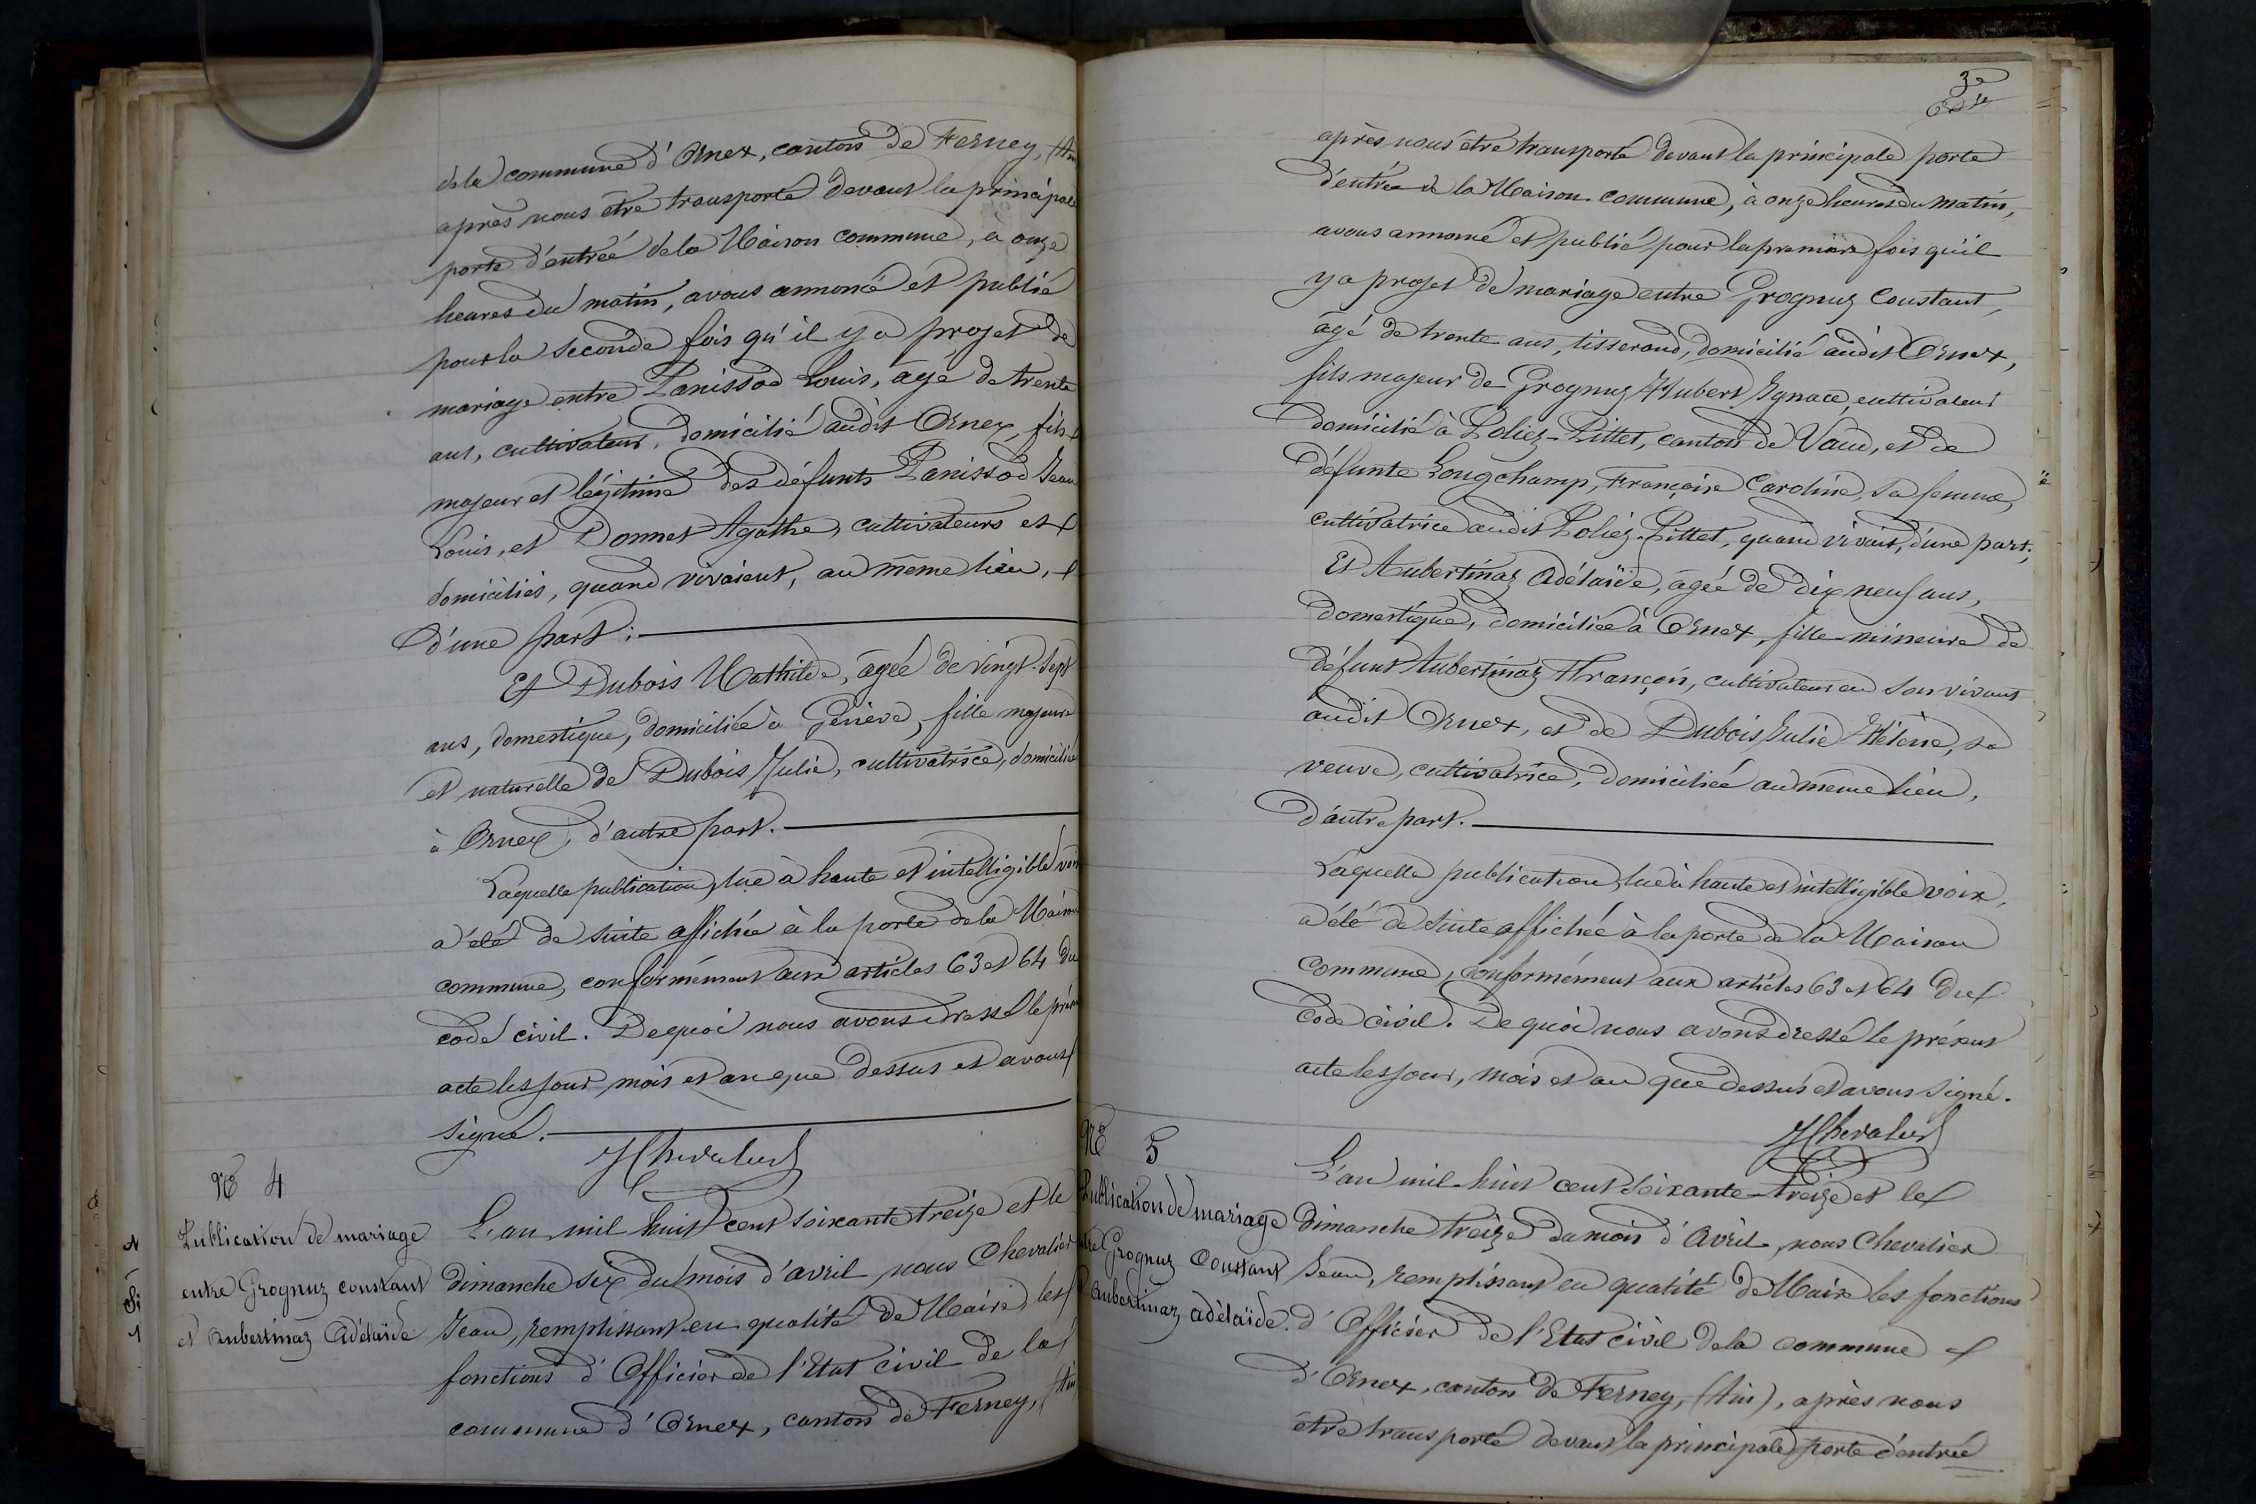 de la commune d'Ornex, canton de Ferney, (Ain
après nous être transporté devant la principale
porte d'entrée de la Maison commune, à onze
heures du matin, avons annoncé et publié
pour la seconde fois qu'il y a projet de
mariage entre Panissod Louis, âgé de trente
ans, cultivateur, domicilié audit Ornex, fils
majeur et légitime des défunts Panissod Jean
Louis, et Donnet Agathe, cultivateurs et
domiciliés, quand vivaient, au même lieu,
d'une part;
Et Dubois Mathilde, âgée de vingt-sept
ans, domestique, domiciliée à Genève, fille majeure
et naturelle de Dubois Julie, cultivatrice, domiciliée
à Ornex, d'autre part.
Laquelle publication, lue à haute et intelligible voix
a été de suite affichée à la porte de la Maison
commune, conformément aux articles 63 et 64 du
code civil. De quoi nous avons dressé le présent
acte les jour, mois et an que dessus et avons
signé.
J Chevalier
No 4
Publication de mariage
entre Grognuz constant
et Aubertinaz Adélaïde
L'an mil huit cent soixante treize et le
dimanche six du mois d'avril nous Chevalier
Jean, remplissant en qualité de Maire, les
fonctions d'Officier de l'Etat civil de la
commune d'Ornex, canton de Ferney, (Ain
3e
après nous être transporté devant la principale porte
d'entrée de la Maison commune, à onze heures du matin,
avons annoncé et publié pour la première fois qu'il
y a projet de mariage entre Grognuz Constant,
âgé de trente ans, tisserand, domicilié audit Ornex,
fils majeur de Grognuz Hubert Ignace, cultivateur
domicilié à Poliez-Pittet, canton de Vaud, et de
défunte Longchamp, Françoise Caroline, sa femme,
cultivatrice audit Poliez-Pittet, quand vivait, d'une part;
Et Aubertinaz Adélaïde, âgée de dix neuf ans,
domestique, domiciliée à Ornex, fille mineure de
défunt Aubertinaz François, cultivateur en son vivant
audit Ornex, et de Dubois Julie Hélène, sa
veuve, cultivatrice, domiciliée au même lieu,
d'autre part.
Laquelle publication, lue à haute et intelligible voix,
a été de suite affichée à la porte de la Maison
commune, conformément aux articles 63 et 64 du
Code civil. De quoi nous avons dressé le présent
acte les jour, mois et an que dessus et avons signé.
J Chevalier
No 5
Publication de mariage
entre Grognuz Constant
et Aubertinaz adélaïde.
L'an mil huit cent soixante-treize et le
dimanche treize du mois d'Avril, nous Chevalier
Jean, remplissant en qualité de Maire les fonctions
d'Officier de l'Etat civil de la commune
d'Ornex, canton de Ferney, (Ain), après nous
être transporté devant la principale porte d'entrée